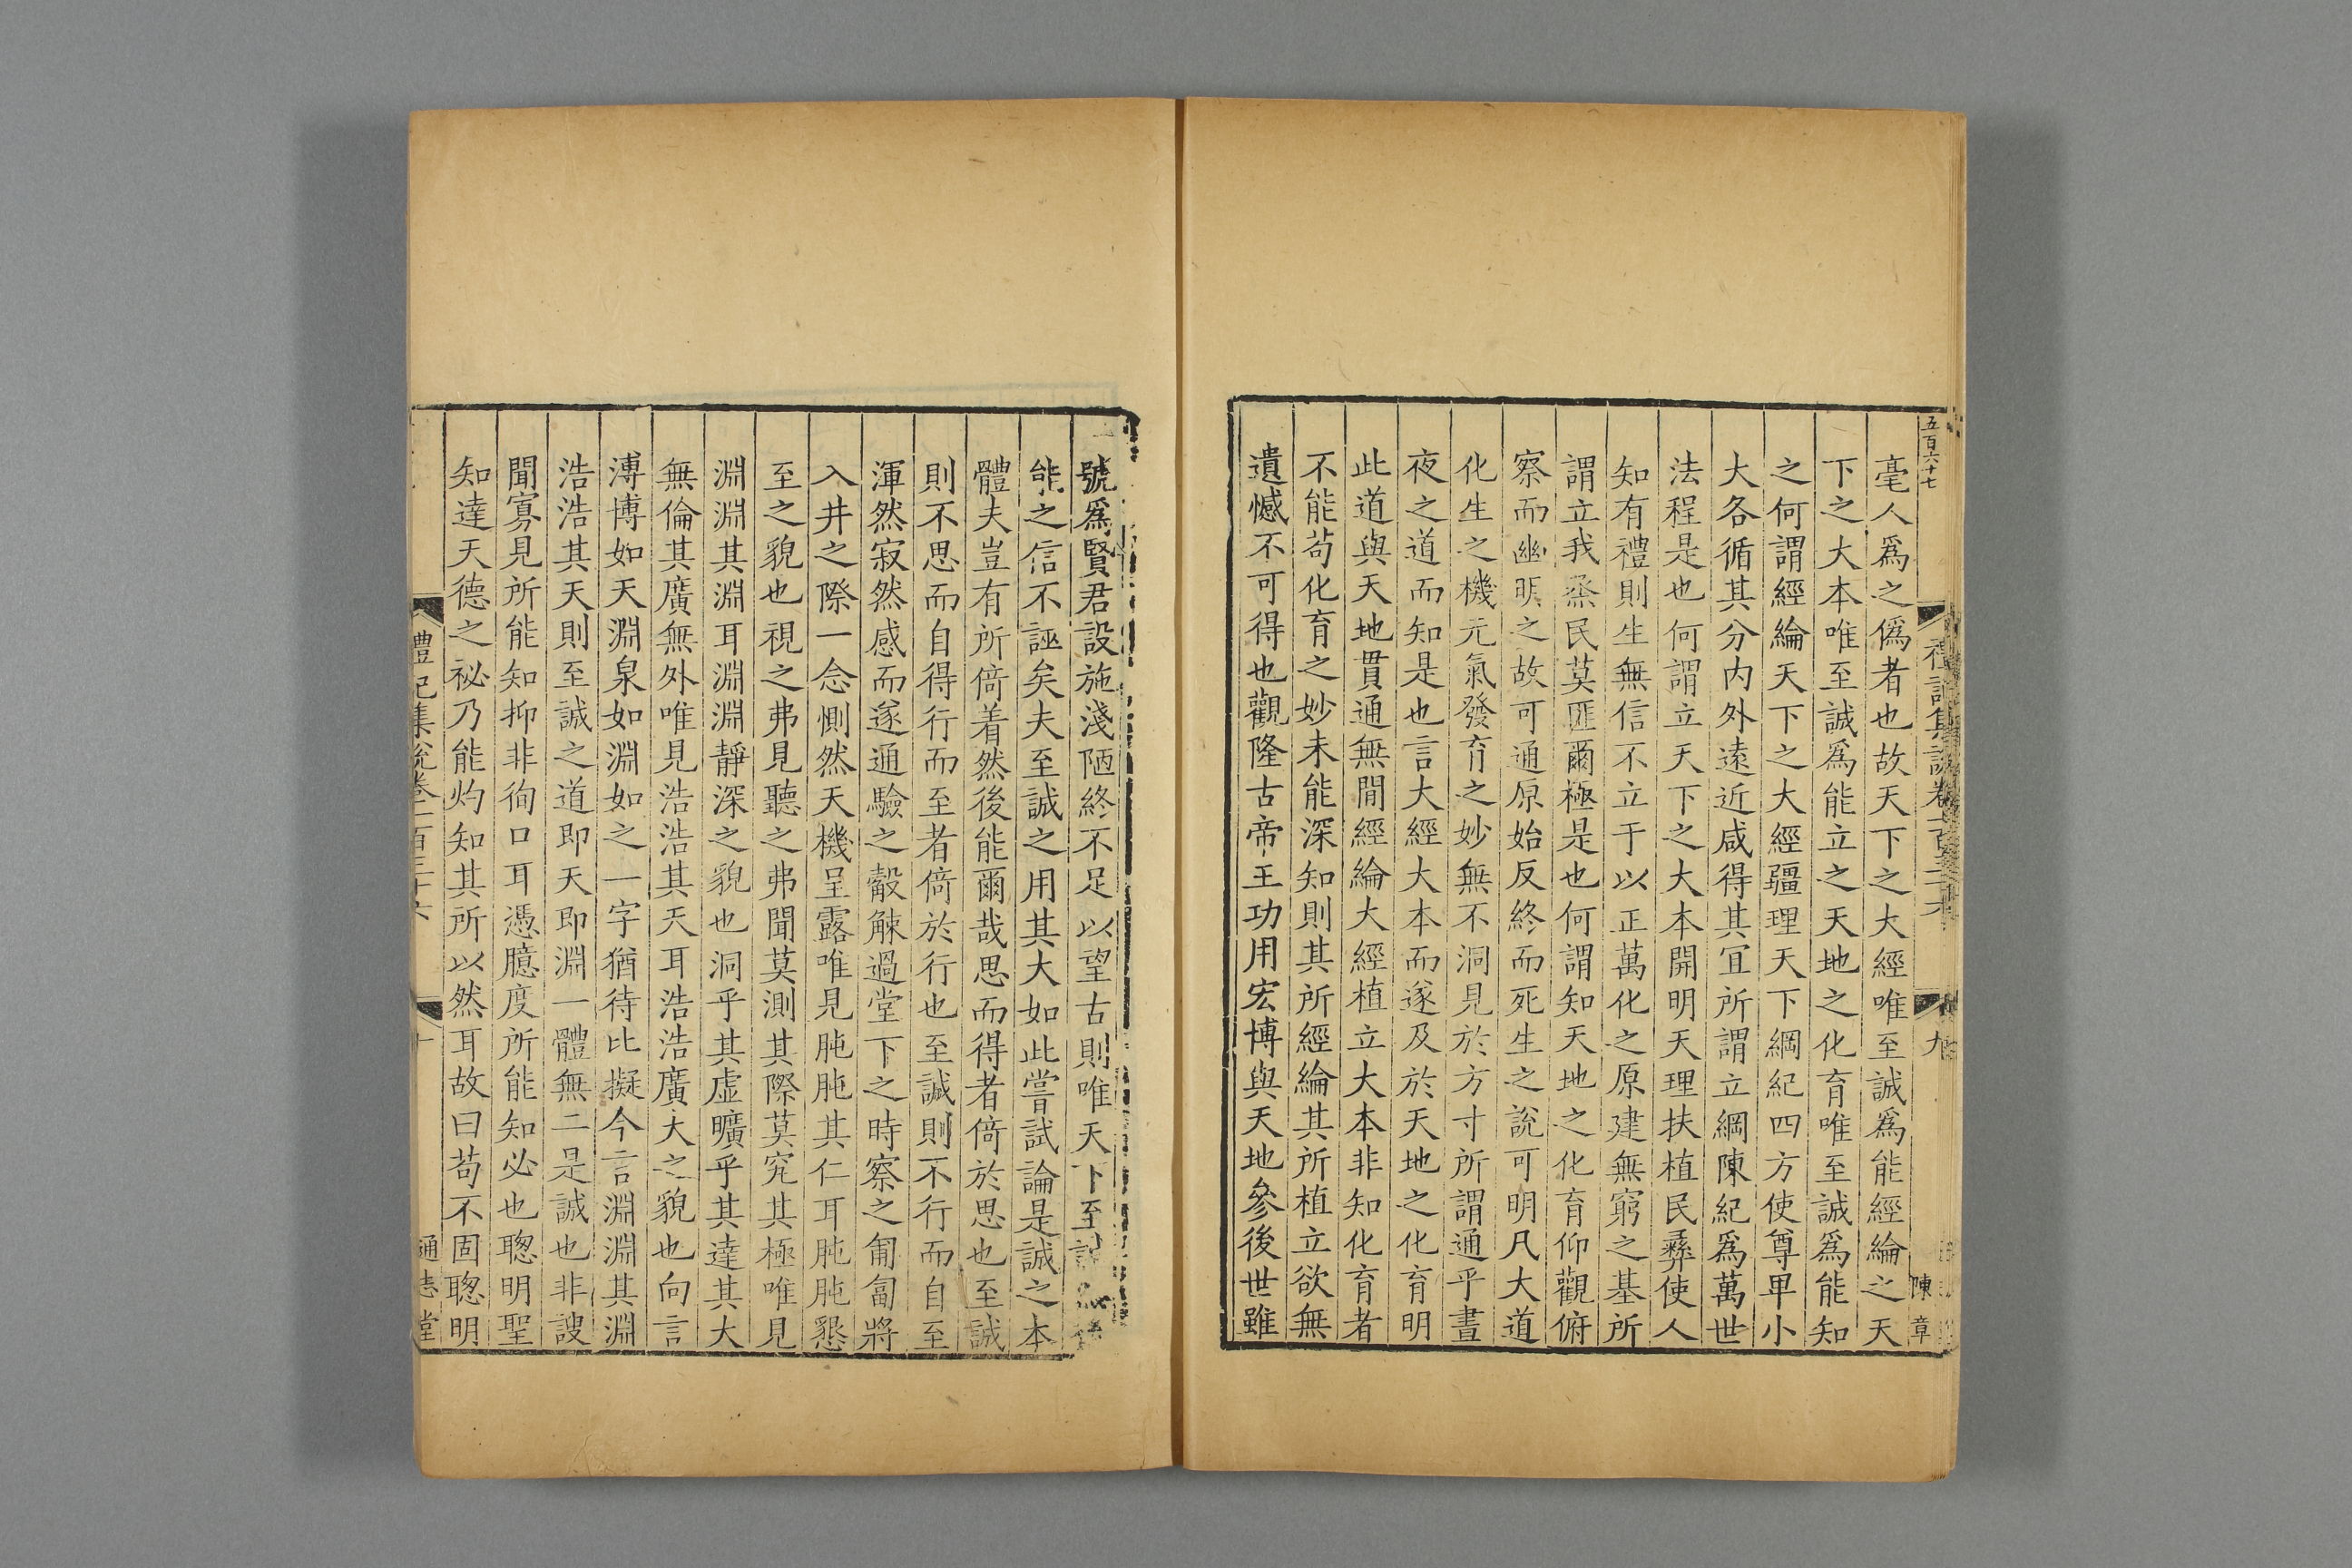 五百六十七
禮記集說卷一百三十六
九
陳章
毫人爲之僞者也故天下之大經唯至誠爲能經綸之天
下之大本唯至誠爲能立之天地之化育唯至誠爲能知
之何謂經綸天下之大經疆理天下綱紀四方使尊卑小
大各循其分内外遠近咸得其宜所謂立綱陳紀爲萬世
法程是也何謂立天下之大本開明天理扶植民彝使人
知有禮則生無信不立于以正萬化之原建無窮之基所
謂立我烝民莫匪爾極是也何謂知天地之化育仰觀俯
察而幽明之故可通原始反終而死生之說可明凡大道
化生之機元氣發育之妙無不洞見於方寸所謂通乎晝
夜之道而知是也言大經大本而遂及於天地之化育明
此道與天地貫通無間經綸大經植立大本非知化育者
不能苟化育之妙未能深知則其所經綸其所植立欲無
遺憾不可得也觀隆古帝王功用宏博與天地參後世雖
號爲賢君設施淺陋終不足以望古則唯天下至誠
能之信不誣矣夫至誠之用其大如此嘗試論是誠之本
體夫豈有所倚着然後能爾哉思而得者倚於思也至誠
則不思而自得行而至者倚於行也至誠則不行而自至
渾然寂然感而遂通驗之觳觫過堂下之時察之匍匐將
入井之際一念惻然天機呈露唯見肫肫其仁耳肫肫懇
至之貌也視之弗見聽之弗聞莫測其際莫究其極唯見
淵淵其淵耳淵淵靜深之貌也洞乎其虛曠乎其達其大
無倫其廣無外唯見浩浩其天耳浩浩廣大之貌也向言
溥博如天淵泉如淵如之一字猶待比擬今言淵淵其淵
浩浩其天則至誠之道即天即淵一體無二是誠也非謏
聞寡見所能知抑非徇口耳憑臆度所能知必也聰明聖
知達天德之祕乃能灼知其所以然耳故曰苟不固聰明
禮記集說卷一百三十六
十
通志堂